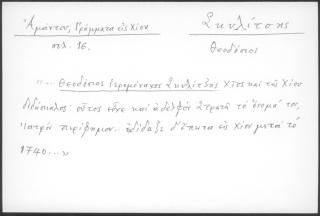 Ἀμάντου, Γράμματα εἰς Χίον
σελ. 16.
Σκυλίτσης
Θεοδόσιος
"... Θεοδόσιος ἱερομόναχος Σκυλίτζης Χῖος καὶ τῆς Χίου
διδάσκαλος· οὗτος εἶχε καὶ ἀδελφὸν Στρατῆ τὸ ὄνομά του,
ἰατρὸν περίφημον... ἐδίδαξε δ' ἔπειτα εἰς Χίον μετὰ τὸ
1740..."